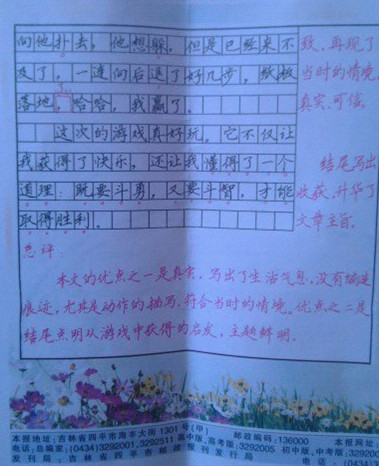 向他扑去，他想躲，但是已经来不
及了，一连向后退了好几步，纸板
落地，哈哈，我赢了。
这次的游戏真好玩，它不仅让
我获得了快乐，还让我懂得了一个
道理：既要斗勇，又要斗智，才能
取得胜利。
致，再现了
当时的情境
真实、可信。
结尾写出
收获，升华了
文章主旨。
总评：
本文的优点之一是真实，写出了生活气息，没有编造
痕迹，尤其是动作的描写，符合当时的情境。优点之二是
结尾点明从游戏中获得的启发，主题鲜明。
本报地址：吉林省四平市海丰大街1301号(甲) 邮政编码：136000 本报网址：
电话：总编室：(0434)3292001、3292511 高中版、高考版：3292005 初中版、中考版：32900
发刊局：吉林省四平市邮政报刊发行局 电话：(0434)